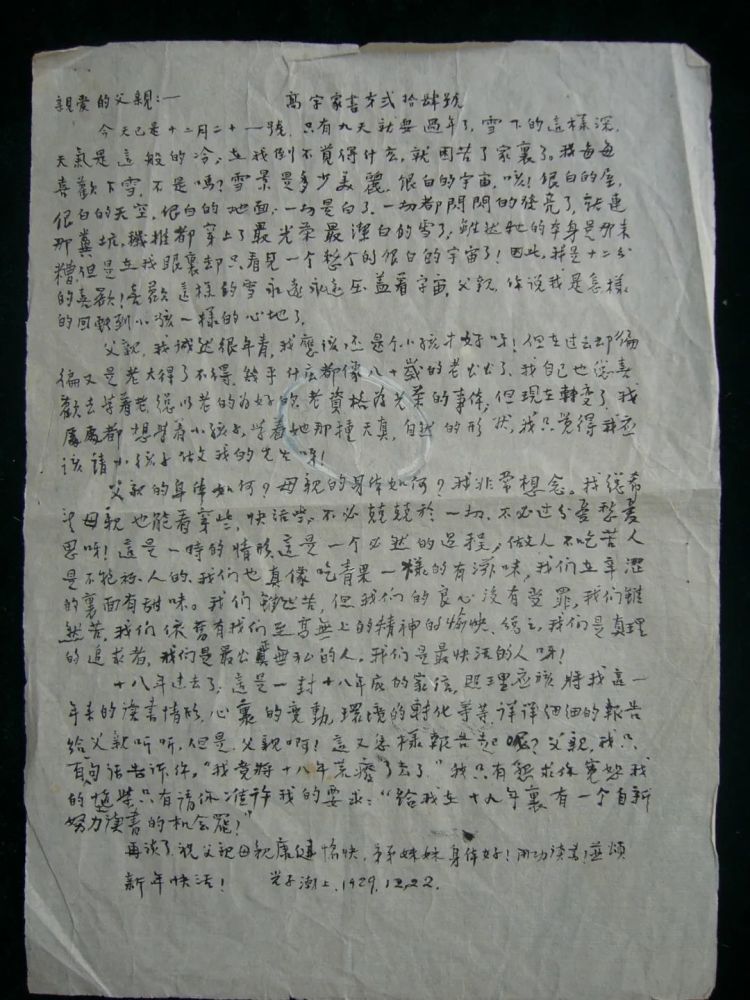 親愛的父親：— 高宇家書第弍拾肆號
今天已是十二月二十一號，只有九天就要過年了，雪下的這樣深，
天氣是這般的冷，在我倒不覺得什么，就困苦了家裏了。我每每
喜歡下雪，不是嗎？雪景是多少美麗，很白的宇宙，咳！很白的屋，
很白的天空，很白的地面，一切是白了，一切都閃閃的發亮了，就連
那糞坑，穢堆都穿上了最光荣最潔白的雪了，雖然牠的本身是那末
糟，但是在我眼裏却只看見一个整个的很白的宇宙了！因此，我是十二分
的喜歡！喜歡這樣的雪永遠永遠压蓋着宇宙，父親，你说我是怎樣
的回歸到小孩一樣的心地了。
父親，我誠然很年青，我應该还是个小孩才好呀！但在过去却偏
偏又是老大得了不得，幾乎什么都像八十歲的老公公了，我自己也總喜
歡去学着老，總以老的为好的，老資格为光荣的事体，但現在轉变了，我
處處都想学着小孩子，学着她那種天真，自然的形狀，我只覺得我应
该請小孩子做我的先生呀！
父親的身体如何？母親的身体如何？我非常想念。我總希
望母親也能看穿些，快活些，不必兢兢於一切，不必过分爱愁爱
思呀！這是一時的情形，這是一个必然的过程，做人不吃苦人
是不能称人的，我们也真像吃青果一樣的有滋味，我们在辛澀
的裏面有甜味。我们雖然苦，但我们的良心沒有受罪，我们雖
然苦，我们依舊有我们至高無上的精神的愉快，總之，我们是真理
的追求者，我们是最公冀無私的人。我们是最快活的人呀！
十八年过去了，這是一封十八年底的家信，照理应该將我這一
年来的读書情形，心裏的变動，環境的轉化等等，详详细细的報告
给父親听听，但是，父親啊！這又怎樣報告起呢？父親，我只
有句话告诉你，“我竟将十八年荒廢了去了” 我只有懇求你寬恕我
的 只有请你准许我的要求：“給我在十九年裏有一个自新
努力读書的机会罷！”
再谈了，祝父親母親康健愉快，弟弟妹妹身体好！用功读書！並頌
新年快活！ 兒子 上，1929，12，22．